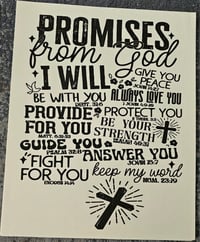 PROMISES
from God
I WILL
GIVE YOU
PEACE
BE WITH YOU
DEUT. 31:6
ALWAYS LOVE YOU
PROVIDE
FOR YOU
MATT. 6:31-32
PROTECT YOU
BE YOUR
STRENGTH
ISAIAH 40:31
GUIDE YOU
PSALM 32:8
ANSWER YOU
JOHN 15:7
FIGHT
FOR YOU
EXODUS 14:14
keep my word
NUM. 23:19